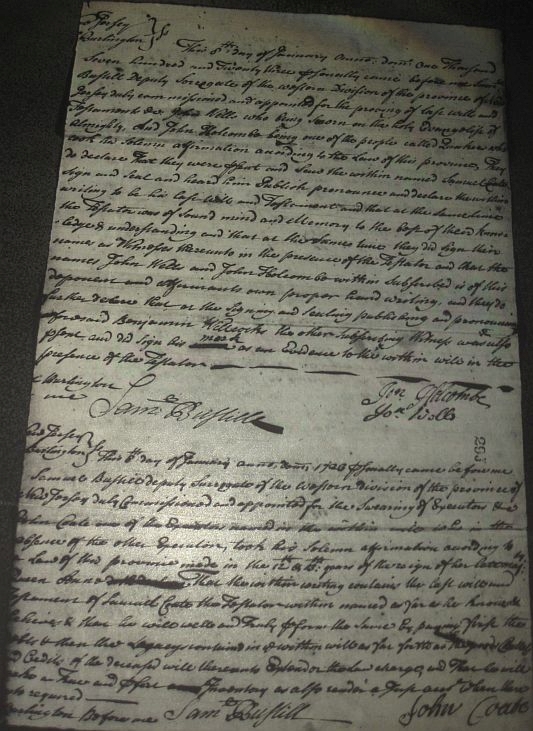 Jersey
Burlington } ss
This 6th day of January Anno: Dom: One Thousand
Seven hundred and Twenty three personally came before me Samuel
Bustill deputy Surrogate of the western Division of the province of New
Jersey duly commissioned and appointed for the proving of last wills and
Testaments &c John Wills who being Sworn on the holy Evangelists of
Almighty. And John Holcombe being one of the people called Quakers who
took the Solemn affirmation according to the Law of this province, They
do declare That they were psent and Saw the within named Samuel Coate
Sign and Seal and heard him Publish pronounce and declare the within
writing to be his last will and Testament and that at the same time
the Testator was of Sound mind and Memory to the best of their Know-
ledge & understanding and that at the same time they did Sign their
names as Witnesses thereunto in the presence of the Testator and that the
names John Wills and John Holcombe within Subscribed is of this
deponent and affirmants own proper hand writing, and they do
further declare that at the Signing and Sealing publishing and pronouncing
aforesaid Benjamin the other Subscribing Witness was also
psent and did Sign his mark as an Evidence to the within will in the
presence of the Testator
Burlington
me Saml Bustill
Jno Holcombe
Jno Wills
293
New Jersey
Burlington ss This 6th day of January anno: dom: 1723 psonally came before me
Samuel Bustill deputy Surrogate of the Western division of the province of
New Jersey duly Commissioned and appointed for the Swearing of Executors &c
John Coate one of the Executors named in the within will who in the
absence of the other Executors, took his Solemn affirmation according to
Law of this province made in the years of the reign of her late maj:
Queen Anne That the within writing contains the last will and
Testament of Samuel Coate the Testator within named as far as he knows &
believes & that he will well and Truly pform the Same by paying first the
debts & then the Legacys contained in ye within will as far forth as the goods Chattels
and Credits of the deceased will thereunto Extend or the Law charge, and That he will
make a True and pfect Inventory as also render a Just acct when there
to required
Burlington Before me Saml Bustill
John Coate